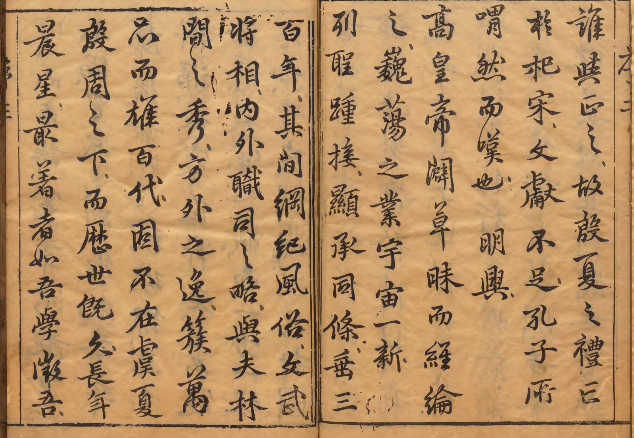 誰與正之故殷夏之禮亡
於杞宋文獻不足孔子所
喟然而嘆也　明興
高皇帝闢草昧而經綸
之巍蕩之業宇宙一新
列聖踵接顯承同條垂三
百年其间綱紀風俗文武
將相内外職司之略與夫林
間之秀方外之逸簇萬
品而雄百代固不在虞夏
殷周之下而歷世旣久長年
晨星最著者如吾學徵吾